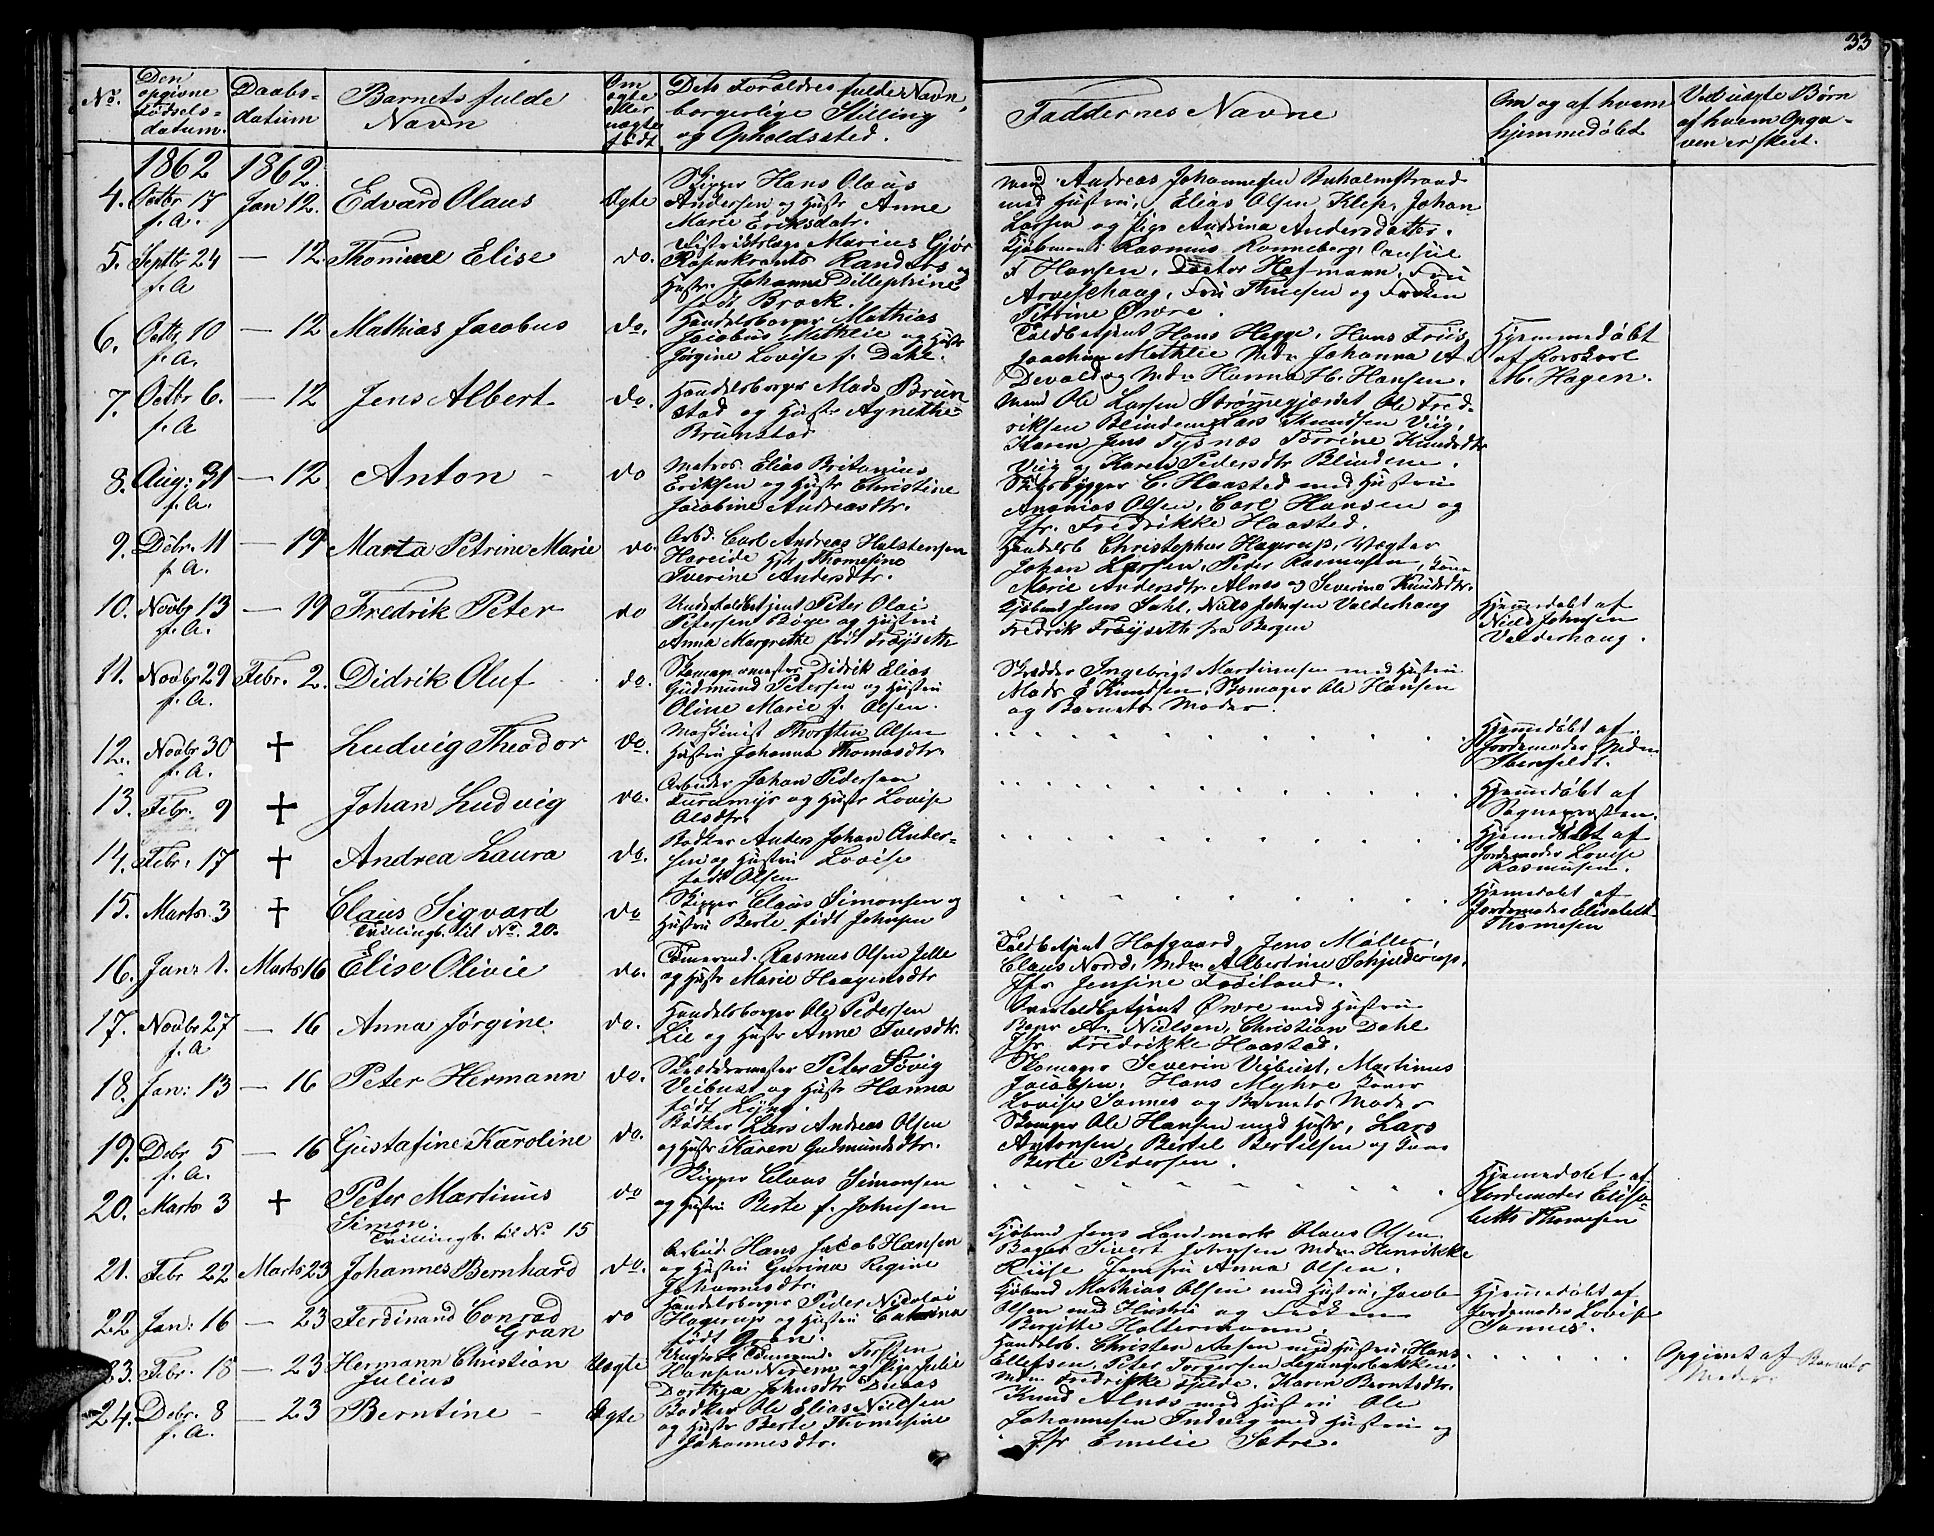 33
No.
Den opgivne fødsels-datum.
Daabs-datum
Barnets fulde Navn
Om ægte eller uægte født
Dets Forældres fulde Navn, borgerlige Stilling og Opholdssted.
Faddernes Navne
Om og af hvem hjemmedøbt
Ved uægte Børn af hvem Opgaven er skeet.
1862 1862.
4. Octbr 17 f.A. Jan 12. Edvard Olaus Ægte
Skipper Hans Olaus
Andersen og Hustr Anne
Marie Eriksdatr.
Andreas Johannesen
med Hustru, Elias Olsen Klep, Johan
Larsen og Pige Andrina Andersdatter.
5. Septbr 24 f.A — 12. Thomine Elise do.
Districtslæge Marius Gjør
Rosenkrants Randers og
Hustr. Johanna Dillephine
født Brock.
Kjøbmand Rasmus Rønneberg, Consul
F Hansen, Doctor Hofmann, Fru
Arveschoug, Fru Thuesen og Frøken
Petrine Øvre.
6. Octbr 10 f.A. — 12 Mathias Jacobus do.
Handelsborger Mathias
Jacobus Methlie og Hustr
Jørgine Lovise f. Dahl.
Toldbetjent Hans Hegge, Hans Friis
Joachim Methlie Mdm Johanna A.
Devold og Mdm Hanna H. Hansen.
Hjemmedøbt
af Korskarl
M. Hagen.
7. Octbr 6. f.A — 12 Jens Albert do.
Handelsborger Mads Brun
stad og Hustr Agnethe
Brunstad
Mend Ole Larsen Strømegjærdet Ole Fred-
riksen Blindem Lars Knudsen Viig,
Karen Jens Tysnes Torrine Knudsdtr
Viig og Karen Pedersdtr Blindem.
8. Aug: 31 f.A. — 12 Anton - do
Matros Elias Britanius
Eriksen og Hustr Christine
Jacobine Andreasdtr.
Skibsbygger C. Haasted med Hustru
Ananias Olsen, Carl Hansen og
Jfr. Fredrikke Haasted.
9. Debr. 11 f.A. — 19 Marta Petrine Marie do.
Arbd. Carl Andreas Halstensen
Hareide Hstr Thomesine
Iverine Andersdtr.
Handelsb Christopher Hagerup, Vægter
Johan Larsen, Peder Rasmussen,
Marie Andersdtr Alnes og Severine Knudsdtr.
10. Novbr 13 f.A. — 19 Fredrik Peter do
Undertoldbetjent Peter Olai
Petersen Bøge og Hustru
Anna Margrethe født Frøyseth
Kjøbmd Jens Dahl, Niels Johnsen Valderhaug
Fredrik Frøyseth fra Bergen
Hjemedøbt af
Niels Johnsen
Valderhaug.
11. Novbr 29 f.A. Febr. 2. Didrik Oluf do.
Skomagermester Didrik Elias
Gudmund Petersen og Hustru
Oline Marie f. Olsen.
Skrædder Ingebrigt Martinussen med Hustru
Mads E Knudsen, Skomager Ole Hansen
og Barnets Moder.
12. Novbr 30 f.A. + Ludvig Theodor do.
Maskinist Thorsten Olsen
Hustru Johanna Thomasdtr.
Hjemedøbt af
Jordemoder Mdm
Ibenfeldt.
13. Febr. 9 + Johan Ludvig do.
Arbeider Johan Pedersen
Turemyr og Hustr Lovise
Olsdtr.
Hjemedøbt af
Sogneprosten.
14. Febr. 17 + Andrea Laura do.
Bødker Anders Johan Ander-
sen og Hustru Lovise
født Olsen
Hjemedøbt af
Jordemoder Lovise
Rasmusen.
15. Marts. 3 + Claus Sigvard do
Tvillingb. til No. 20.
Skipper Claus Simonsen og
Hustru Berte født Johnsen
Hjemedøbt af
Jordemoder Elisabeth
Thomesen
16. Jan: 1. Marts 16 Elise Olivie do.
Tømermd. Rasmus Olsen Jelle
og Hustr Marie Haagensdtr
Toldbetjent Hofgaard, Jens Møller,
Claus Nord, Mdm Albertine Schjelderup,
Jfr Jensine Frøiland.
17. Novbr 27 f.A — 16 Anna Jørgine do.
Handelsborger Ole Pedersen
Lie og Hustr Anne Iversdtr.
Overtoldbetjent Øvre med Hustru
Bager A. Nielsen, Christian Dahl
Jfr Fredrikke Haasted.
18. Jan: 13 — 16 Peter Hermann do.
Skræddermester Peter Søvig
Veibust og Hustr Hanna
født Lyng.
Skomager Severin Veibust, Martinus
Jacobsen, Hans Myhre
Lovise Sonnes og Barnets Moder
19. Debr 5 f.A. — 16 Gustafine Karoline do.
Bødker Lars Andreas Olsen
og Hustr Karen Gudmundsdtr.
Skomager Ole Hansen med Hustr, Lars
Antonsen, Bertel Bertelsen og
Berte Pedersen.
20. Marts 3 + Peter Martinus Simon. do
Tvillingb. til No 15
Skipper Claus Simonsen
og Hustru Berte f. Johnsen
Hjemedøbt af
Jordemoder Elisa-
beth Thomesen
21. Febr 22 Marts 23 Johannes Bernhard do.
Arbeid. Hans Jacob Hansen
og Hustru Gurina Regine
Johannesdtr.
Kjøbmd Jens Landmark Olaus Olsen
Bager Sivert Johnsen Mdm Henrikke
Riise Jomfru Anna Olsen.
22. Jan: 16 — 23 Ferdinand Conrad Gran do
Handelsborger Peder Nicolai
Hagerup og Hustru Catrina
født Gran.
Kjøbmd Mathias Olsen med Hustru, Jacob
Olsen med Hustru og Frøken
Bergitte Holtermann.
Hjemedøbt af
Jordemoder Lovise
Sonnes.
23. Febr. 15 — 23 Hermann Christian Julius Uægte
Ungkarl Tømermd. Torsten
Hansen Nerem og Pige Julie
Dorthea Johnsdtr
Handelsb. Christen Aasen med Hustru, Hans
Ellefsen, Peter Torgersen Legangerbakken
Mdm Fredrikke Fjelde. Karen Berntsdtr.
Opgivet af Barnets
Moder.
24. Debr. 8 f.A. — 23 Berntine - Ægte
Bødker Ole Elias Nielsen
og Hustr Berte Thomesine
Johannesdtr.
Knud Alnes med Hustru Ole
Johannesen Indvig med Hustru og
Jfr Emelie Sætre.